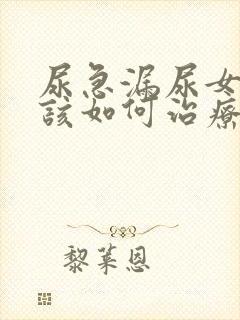 尿急漏尿女
該如何治療
黎萊恩